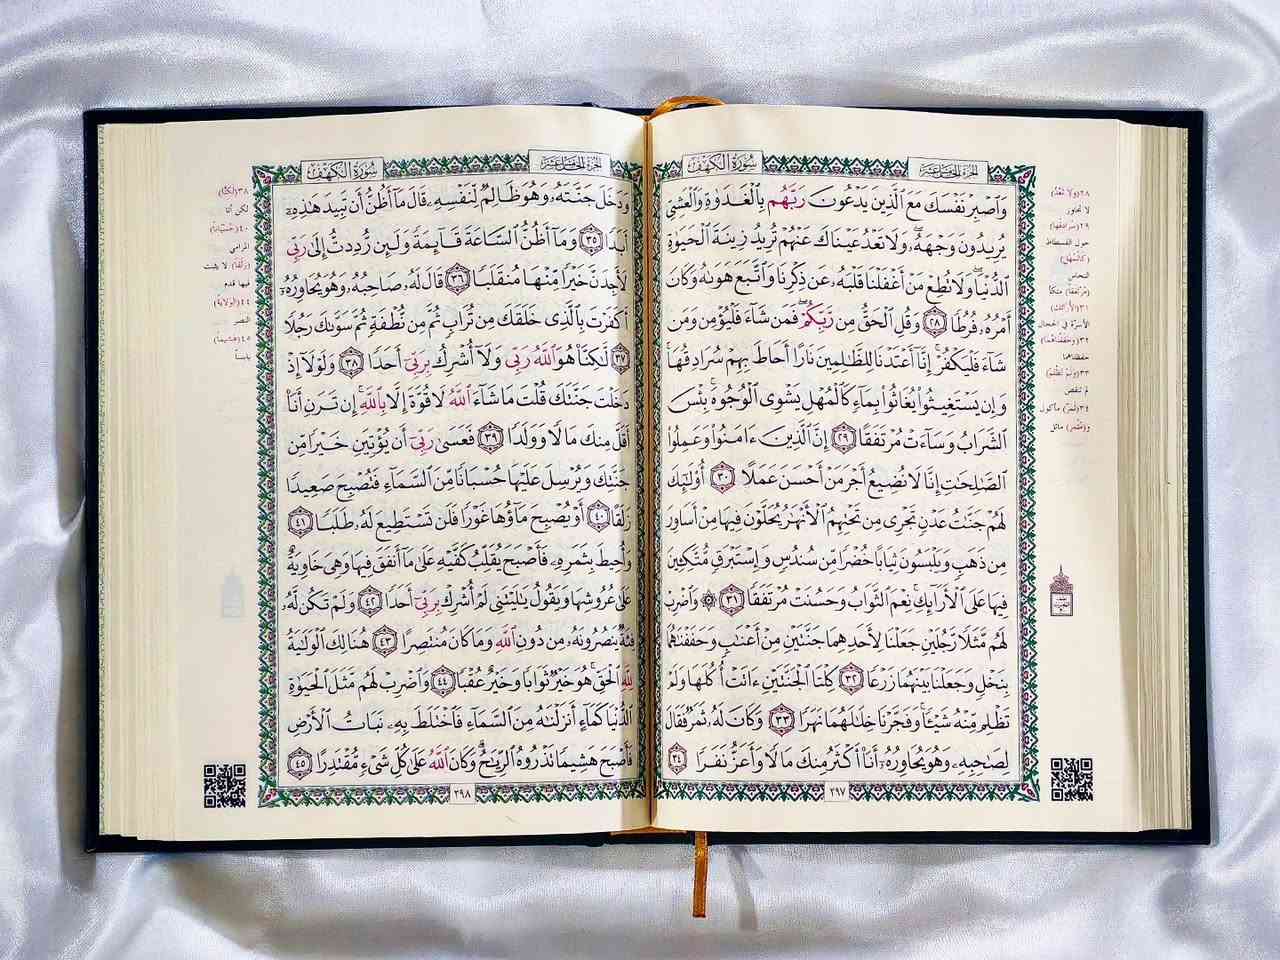 سُورَةُ الكَهْفِ
الجُزْءُ الخَامِسَ عَشَرَ
وَٱصْبِرْ نَفْسَكَ مَعَ ٱلَّذِينَ يَدْعُونَ رَبَّهُم بِٱلْغَدَوٰةِ وَٱلْعَشِيِّ
يُرِيدُونَ وَجْهَهُۥۖ وَلَا تَعْدُ عَيْنَاكَ عَنْهُمْ تُرِيدُ زِينَةَ ٱلْحَيَوٰةِ
ٱلدُّنْيَاۖ وَلَا تُطِعْ مَنْ أَغْفَلْنَا قَلْبَهُۥ عَن ذِكْرِنَا وَٱتَّبَعَ هَوَىٰهُ وَكَانَ
أَمْرُهُۥ فُرُطًا ٢٨ وَقُلِ ٱلْحَقُّ مِن رَّبِّكُمْۖ فَمَن شَآءَ فَلْيُؤْمِن وَمَن
شَآءَ فَلْيَكْفُرْۚ إِنَّآ أَعْتَدْنَا لِلظَّٰلِمِينَ نَارًا أَحَاطَ بِهِمْ سُرَادِقُهَاۚ
وَإِن يَسْتَغِيثُوا۟ يُغَاثُوا۟ بِمَآءٍ كَٱلْمُهْلِ يَشْوِى ٱلْوُجُوهَۚ بِئْسَ
ٱلشَّرَابُ وَسَآءَتْ مُرْتَفَقًا ٢٩ إِنَّ ٱلَّذِينَ ءَامَنُوا۟ وَعَمِلُوا۟
ٱلصَّٰلِحَٰتِ إِنَّا لَا نُضِيعُ أَجْرَ مَنْ أَحْسَنَ عَمَلًا ٣٠ أُو۟لَٰٓئِكَ
لَهُمْ جَنَّٰتُ عَدْنٍ تَجْرِى مِن تَحْتِهِمُ ٱلْأَنْهَٰرُ يُحَلَّوْنَ فِيهَا مِنْ أَسَاوِرَ
مِن ذَهَبٍ وَيَلْبَسُونَ ثِيَابًا خُضْرًا مِّن سُندُسٍ وَإِسْتَبْرَقٍ مُّتَّكِـِٔينَ
فِيهَا عَلَى ٱلْأَرَآئِكِۚ نِعْمَ ٱلثَّوَابُ وَحَسُنَتْ مُرْتَفَقًا ٣١ ۞ وَٱضْرِبْ
لَهُم مَّثَلًا رَّجُلَيْنِ جَعَلْنَا لِأَحَدِهِمَا جَنَّتَيْنِ مِنْ أَعْنَٰبٍ وَحَفَفْنَٰهُمَا
بِنَخْلٍ وَجَعَلْنَا بَيْنَهُمَا زَرْعًا ٣٢ كِلْتَا ٱلْجَنَّتَيْنِ ءَاتَتْ أُكُلَهَا وَلَمْ
تَظْلِم مِّنْهُ شَيْـًٔاۚ وَفَجَّرْنَا خِلَٰلَهُمَا نَهَرًا ٣٣ وَكَانَ لَهُۥ ثَمَرٌ فَقَالَ
لِصَٰحِبِهِۦ وَهُوَ يُحَاوِرُهُۥٓ أَنَا۠ أَكْثَرُ مِنكَ مَالًا وَأَعَزُّ نَفَرًا ٣٤
٢٩٧
٢٨(ولا تَعْدُ)
لا تتجاوز
٢٩(سرادقها)
حول الفسطاط
(كالمُهل)
النحاس
(مرتفقا) متكأ
٣١(الأرائك)
الأسرّة في الحجال
٣٢(وحففناهما)
حفظناهما
٣٣(ولم تظلم)
لم تنقص
٣٤(ثمر) مأكول
و(مثمر) مائل
سُورَةُ الكَهْفِ
الجُزْءُ الخَامِسَ عَشَرَ
وَدَخَلَ جَنَّتَهُۥ وَهُوَ ظَالِمٌ لِّنَفْسِهِۦ قَالَ مَآ أَظُنُّ أَن تَبِيدَ هَٰذِهِۦٓ
أَبَدًا ٣٥ وَمَآ أَظُنُّ ٱلسَّاعَةَ قَآئِمَةً وَلَئِن رُّدِدتُّ إِلَىٰ رَبِّى
لَأَجِدَنَّ خَيْرًا مِّنْهَا مُنقَلَبًا ٣٦ قَالَ لَهُۥ صَاحِبُهُۥ وَهُوَ يُحَاوِرُهُۥٓ
أَكَفَرْتَ بِٱلَّذِى خَلَقَكَ مِن تُرَابٍ ثُمَّ مِن نُّطْفَةٍ ثُمَّ سَوَّىٰكَ رَجُلًا
٣٧ لَّٰكِنَّا۠ هُوَ ٱللَّهُ رَبِّى وَلَآ أُشْرِكُ بِرَبِّىٓ أَحَدًا ٣٨ وَلَوْلَآ إِذْ
دَخَلْتَ جَنَّتَكَ قُلْتَ مَا شَآءَ ٱللَّهُ لَا قُوَّةَ إِلَّا بِٱللَّهِۚ إِن تَرَنِ أَنَا۠
أَقَلَّ مِنكَ مَالًا وَوَلَدًا ٣٩ فَعَسَىٰ رَبِّىٓ أَن يُؤْتِيَنِ خَيْرًا مِّن
جَنَّتِكَ وَيُرْسِلَ عَلَيْهَا حُسْبَانًا مِّنَ ٱلسَّمَآءِ فَتُصْبِحَ صَعِيدًا
زَلَقًا ٤٠ أَوْ يُصْبِحَ مَآؤُهَا غَوْرًا فَلَن تَسْتَطِيعَ لَهُۥ طَلَبًا ٤١
وَأُحِيطَ بِثَمَرِهِۦ فَأَصْبَحَ يُقَلِّبُ كَفَّيْهِ عَلَىٰ مَآ أَنفَقَ فِيهَا وَهِىَ خَاوِيَةٌ
عَلَىٰ عُرُوشِهَا وَيَقُولُ يَٰلَيْتَنِى لَمْ أُشْرِكْ بِرَبِّىٓ أَحَدًا ٤٢ وَلَمْ تَكُن لَّهُۥ
فِئَةٌ يَنصُرُونَهُۥ مِن دُونِ ٱللَّهِ وَمَا كَانَ مُنتَصِرًا ٤٣ هُنَالِكَ ٱلْوَلَٰيَةُ
لِلَّهِ ٱلْحَقِّۚ هُوَ خَيْرٌ ثَوَابًا وَخَيْرٌ عُقْبًا ٤٤ وَٱضْرِبْ لَهُم مَّثَلَ ٱلْحَيَوٰةِ
ٱلدُّنْيَا كَمَآءٍ أَنزَلْنَٰهُ مِنَ ٱلسَّمَآءِ فَٱخْتَلَطَ بِهِۦ نَبَاتُ ٱلْأَرْضِ
فَأَصْبَحَ هَشِيمًا تَذْرُوهُ ٱلرِّيَٰحُۗ وَكَانَ ٱللَّهُ عَلَىٰ كُلِّ شَىْءٍ مُّقْتَدِرًا ٤٥
٢٩٨
٣٨(لكنّا)
لكن أنا
٤٠(حُسْبَانا)
المرامي
(زلقا) لا يثبت
فيها قدم
٤٤(الولاية)
النصر
٤٥(هشيما)
يابسا